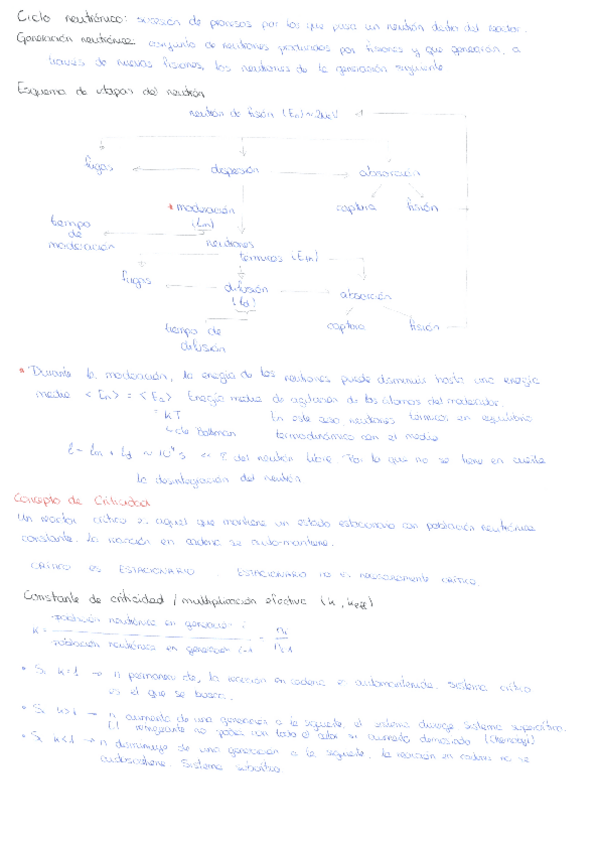 Ciclo neutrónico: sucesión de procesos por los que pasa un neutrón dentro del reactor.
Generación neutrónica: conjunto de neutrones producidos por fisiones y que generarán, a
través de nuevas fisiones, los neutrones de la generación siguiente
Esquema de etapas del neutrón
neutrón de fisión (En) ~ 2MeV
fugas
dispersión
absorción
* moderación
captura
fisión
tiempo
de
moderación
(tm)
neutrones
térmicos (Eth)
fugas
difusión
absorción
(td)
tiempo de
difusión
captura
fisión
* Durante la moderación, la energía de los neutrones puede disminuir hasta una energía
media <En> = <Ea> Energía media de agitación de los átomos del moderador
= KT
En este caso, neutrones térmicos en equilibrio
cte Boltzman
termodinámico con el medio
t ~ tm + td ~ 10⁻⁴ s << τ del neutrón libre. Por lo que no se tiene en cuenta
la desintegración del neutrón
Concepto de Criticidad
Un reactor crítico es aquel que mantiene un estado estacionario con población neutrónica
constante. La reacción en cadena se auto-mantiene.
CRÍTICO ES ESTACIONARIO . ESTACIONARIO no es necesariamente crítico.
Constante de criticidad / multiplicación efectiva (k, keff)
k = población neutrónica en generación i / población neutrónica en generación i-1 = ni / ni-1
• Si k=1 → n permanece cte, la reacción en cadena es automantenida. Sistema crítico
es el que se busca.
• Si k>1 → n aumenta de una generación a la siguiente, el sistema diverge sistema supercrítico.
El refrigerante no puede con todo el calor si aumenta demasiado (Chernobyl)
• Si k<1 → n disminuye de una generación a la siguiente, la reacción en cadena no se
autosostiene. Sistema subcrítico.